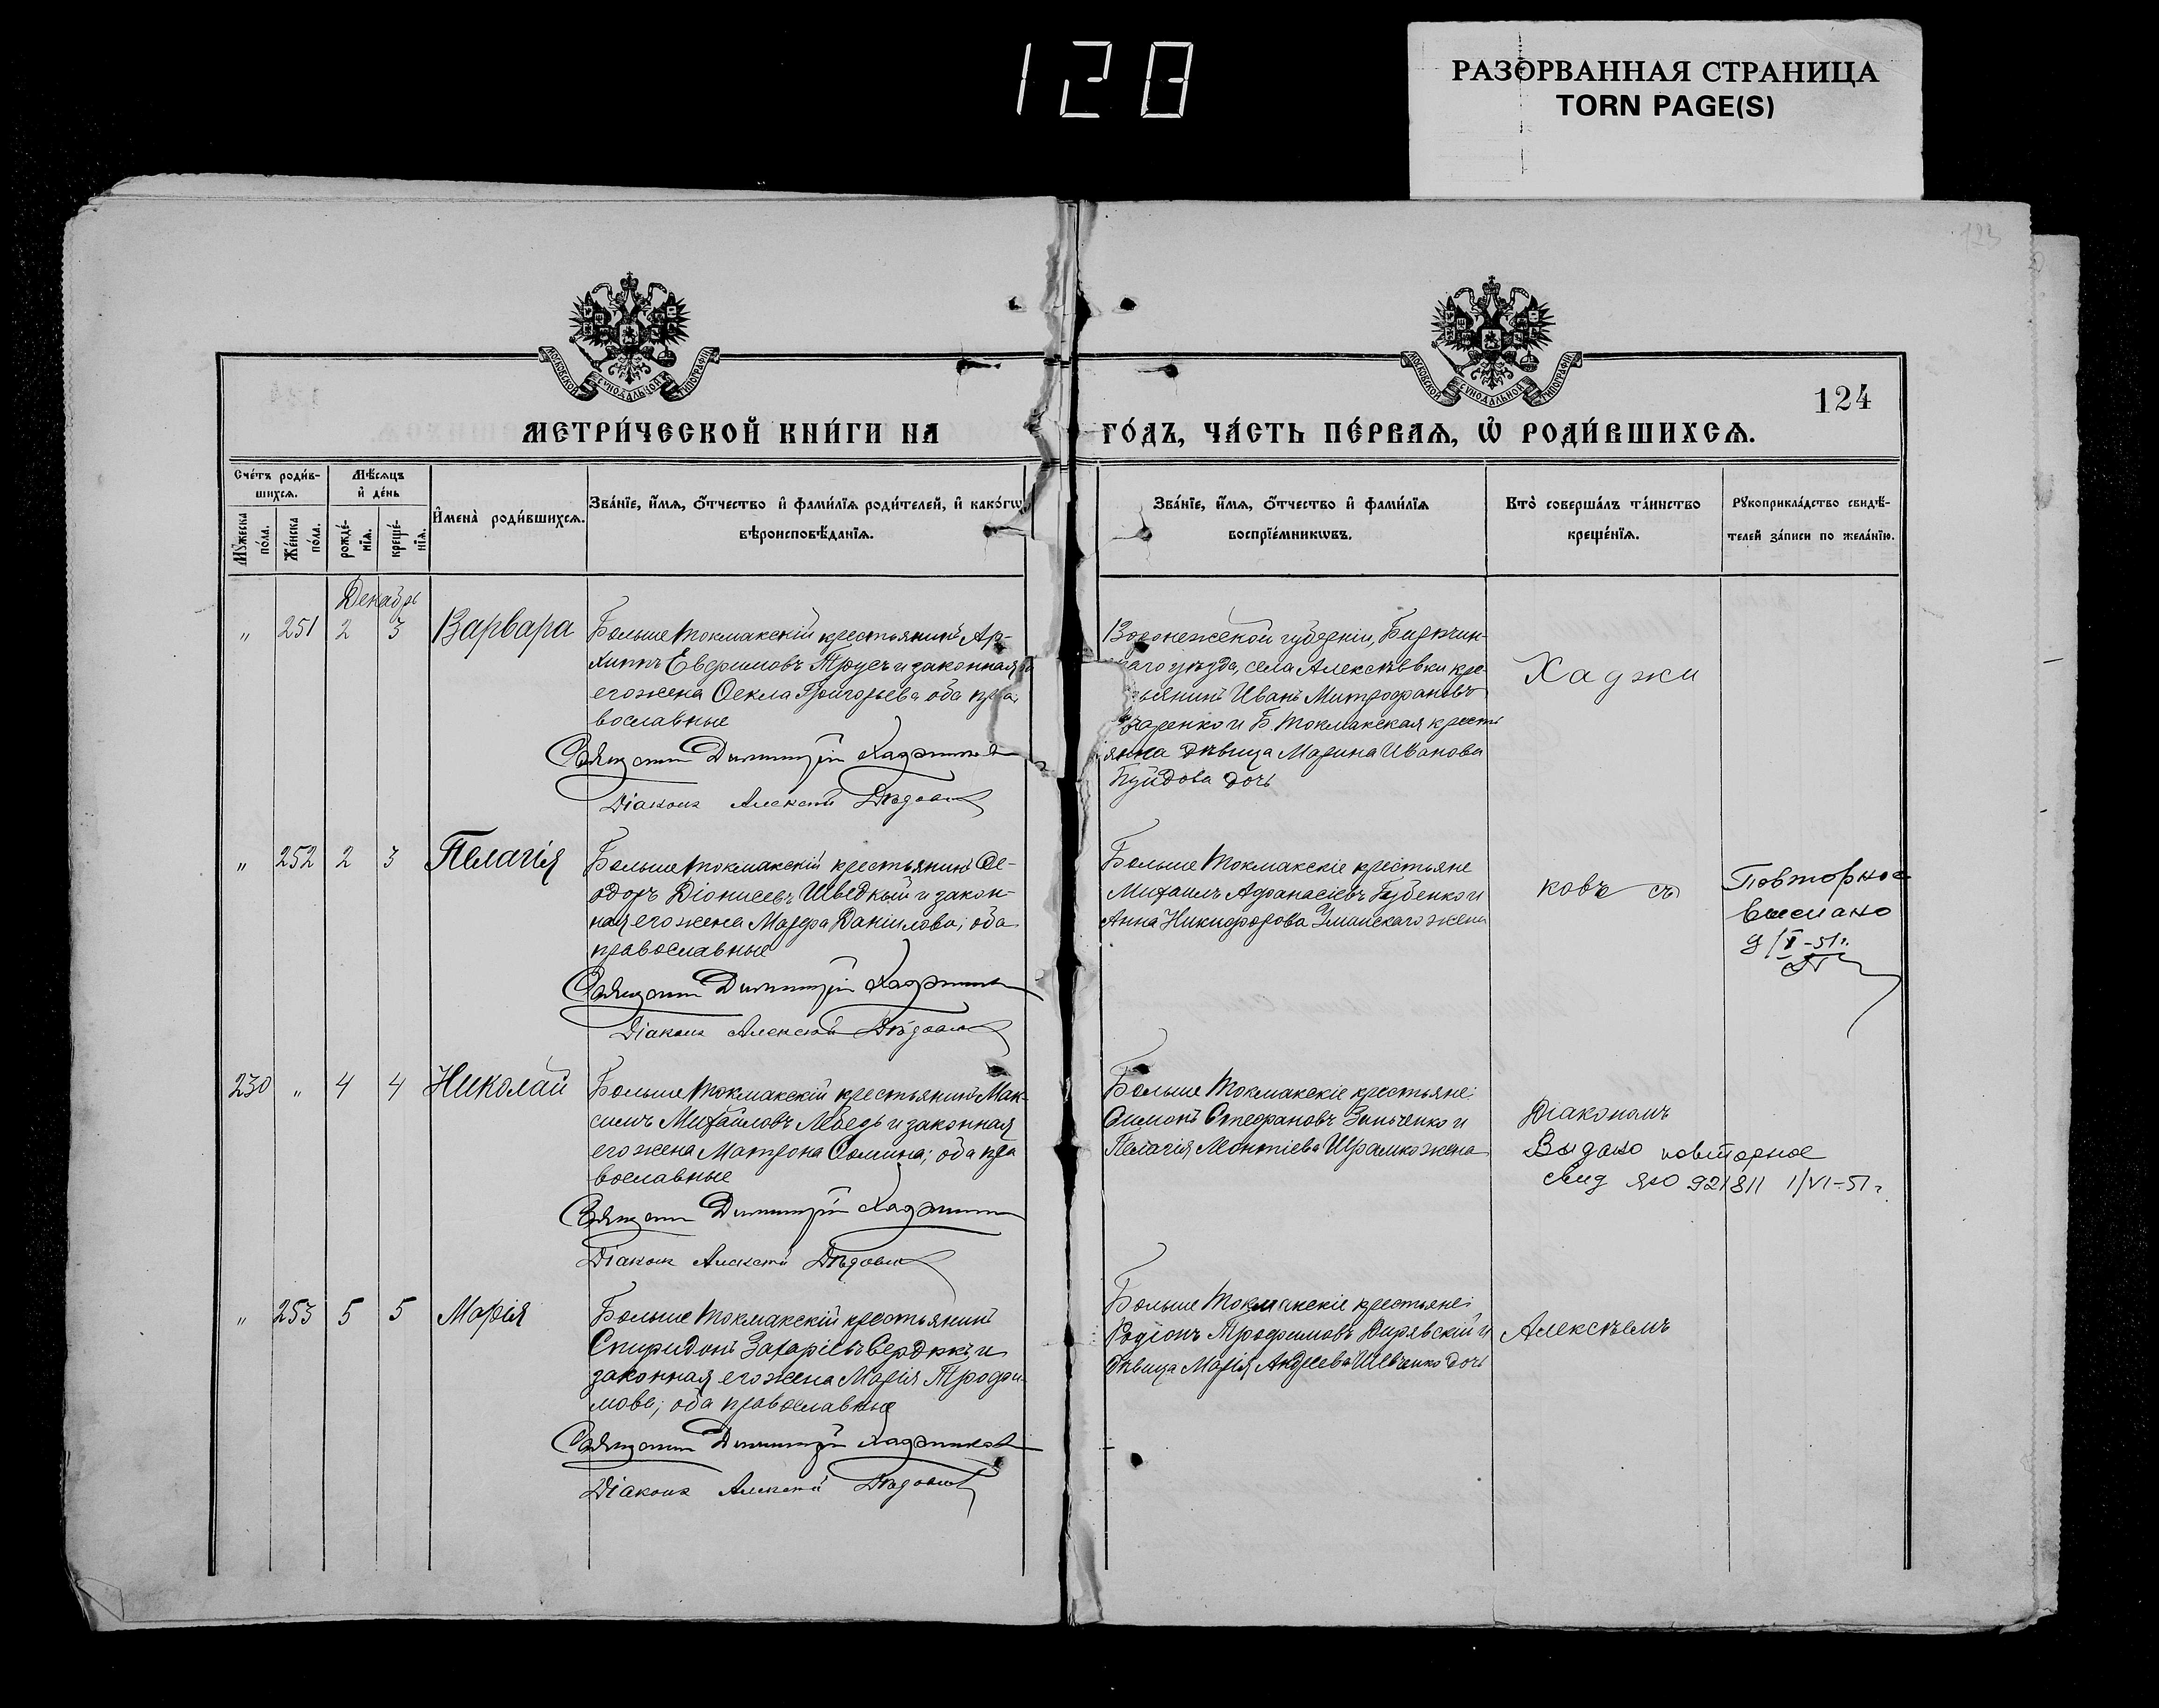 128
РАЗОРВАННАЯ СТРАНИЦА
TORN PAGE(S)
123
МОСКОВСКОЙ СУНОДАЛЬНОЙ ТИПОГРАФІИ
МОСКОВСКОЙ СУНОДАЛЬНОЙ ТИПОГРАФІИ
124
МЕТРИ́ЧЕСКОЙ КНИ́ГИ НА ГО́ДЪ, ЧА́СТЬ ПЕ́РВАѦ, Ѡ҆ РОДИ́ВШИХСѦ.
Сче́тъ роди́в-
шихсѧ.
Мѣ́сѧцъ
и҆ де́нь
Мꙋ́жеска
по́ла.
Же́нска
по́ла.
рожде́-
нїѧ.
креще́-
нїѧ.
И҆мена̀ роди́вшихсѧ.
Зва́нїе, и҆́мѧ, ѻ҆́тчество и҆ фами́лїѧ роди́телей, и҆ како́гѡ
вѣроисповѣ́данїѧ.
Зва́нїе, и҆́мѧ, ѻ҆́тчество и҆ фами́лїѧ
воспрїе́мникѡвъ.
Кто̀ соверша́лъ та́инство
креще́нїѧ.
Рꙋкоприкла́дство свидѣ́-
телей за́писи по жела́нїю.
Декабрь
" 251 2 3 Варвара
Больше Токмакскій крестьянинъ Ар-
хиппъ Евфимовъ Трусъ и законная
его жена Ѳекла Григорьева оба пра
вославные
Священникъ Димитрій Хаджиновъ
Діаконъ Алексѣй Дѣдовъ
Воронежской губерніи, Бирючин-
скаго уѣзда, села Алексѣевки кре
стьянинъ Иванъ Митрофановъ
и Б. Токмакская кресть
янка дѣвица Марина Иванова
дочь
Хаджи
" 252 2 3 Пелагія
Больше Токмакскій крестьянинъ Ѳе-
одоръ Діонисіевъ Шведкый и закон-
ная его жена Марфа Даніилова; оба
православные
Священникъ Димитрій Хаджиновъ
Діаконъ Алексѣй Дѣдовъ
Больше Токмакскіе крестьяне
Михаилъ Афанасіевъ Губенко и
Анна Никифорова Уманскаго жена
ковъ съ
Повторное
выслано
9/V-51г.
230 " 4 4 Николай
Больше Токмакскій крестьянинъ Мак-
симъ Михайловъ Лебедь и законная
его жена Матрона Сомина; оба пра
вославные
Священникъ Димитрій Хаджиновъ
Діаконъ Алексѣй Дѣдовъ
Больше Токмакскіе крестьяне:
Симонъ Стефановъ Зинченко и
Пелагія Леонтіева Шрамко жена
Діакономъ
Выдано повторное
свид ЯЮ 921811 1/VI-51г.
" 253 5 5 Марія
Больше Токмакскій крестьянинъ
Спиридонъ Захаріевъ Сердюкъ и
законная его жена Марія Трофи
мова; оба православные
Священникъ Димитрій Хаджиновъ
Діаконъ Алексѣй Дѣдовъ
Больше Токмакскіе крестьяне:
Родіонъ Трофимовъ Дирявскій и
дѣвица Марія Андреева Шевченко дочь
Алексѣемъ